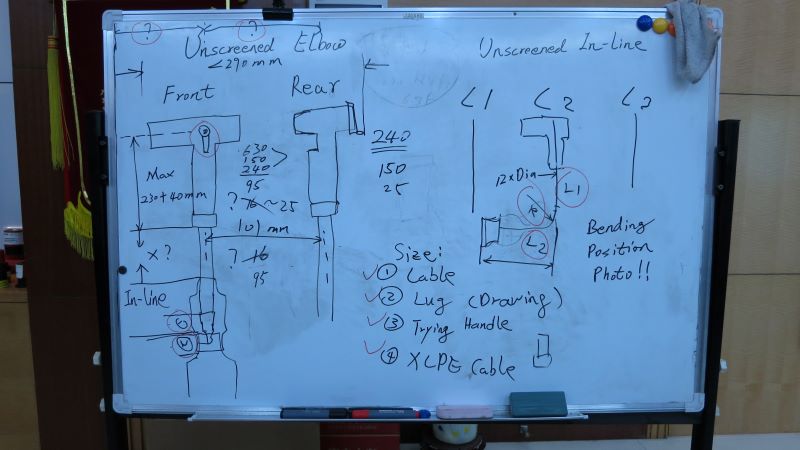 ? ?
Unscreened Elbow
<290mm
Front
Rear
Max
230+40mm
630
150
240
95
? 16 ~25
101 mm
? 16
95
X?
In-line
240
150
25
Unscreened In-line
L1 L2 L3
12xDia
L1
R
L2
Bending
Position
Photo!!
Size:
① Cable
② Lug (Drawing)
③ Trying Handle
④ XLPE Cable